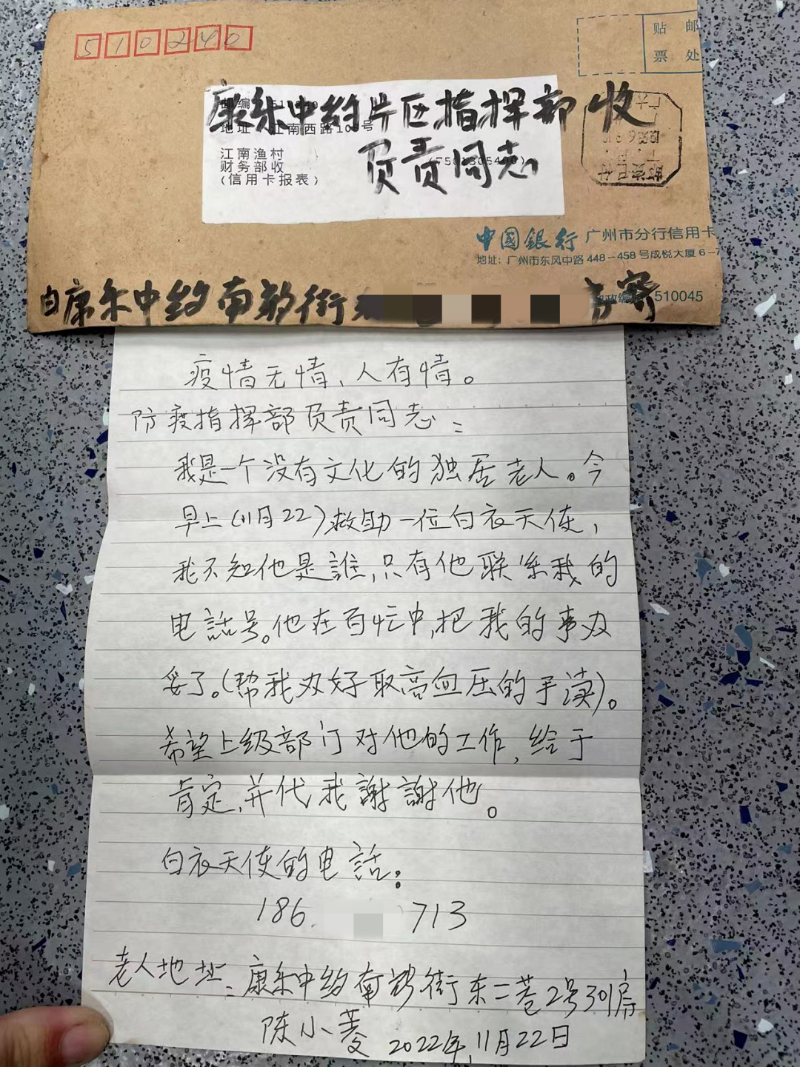 510240
贴 邮
票 处
康乐中约片区指挥部 收
负责同志
江南渔村
财务部收
(信用卡报表)
中國銀行 广州市分行信用卡
地址: 广州市东风中路 448-458 号成悦大厦 6-7
自康乐中约南新街 寄
510045
疫情无情、人有情。
防疫指挥部负责同志:
我是一个没有文化的独居老人。今
早上(11月22)救助一位白衣天使,
我不知他是誰,只有他联系我的
电話号。他在百忙中,把我的事办
妥了。(帮我办好取高血压的手渎)。
希望上级部门对他的工作,给于
肯定,并代我謝謝他。
白衣天使的电話:
186 713
老人地址:康乐中约南新街东二巷2号301房
陈小菱 2022年11月22日